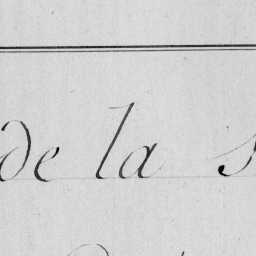 de la s